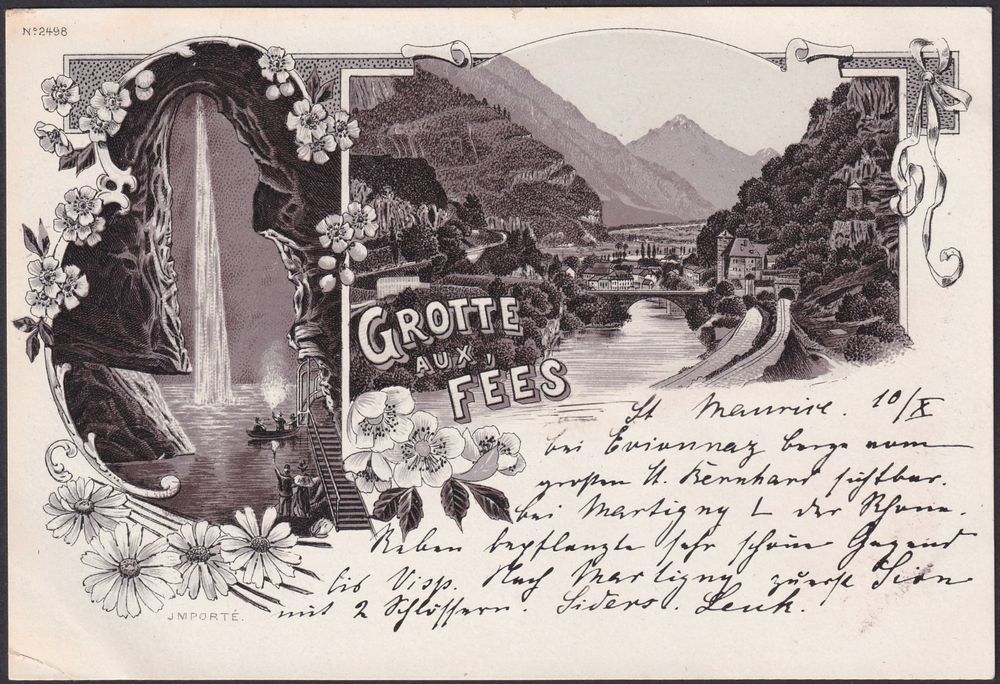 No 2498
GROTTE
AUX
FÉES
St Maurice. 10/X
bei Evionnaz berge vom
großen St. Bernhard sichtbar.
bei Martigny L der Rhone.
Reben bepflanzte sehr schöne Gegend
bis Visp. Nach Martigny zuerst Sion
mit 2 Schlössern. Siders. Leuk.
JMPORTÉ.